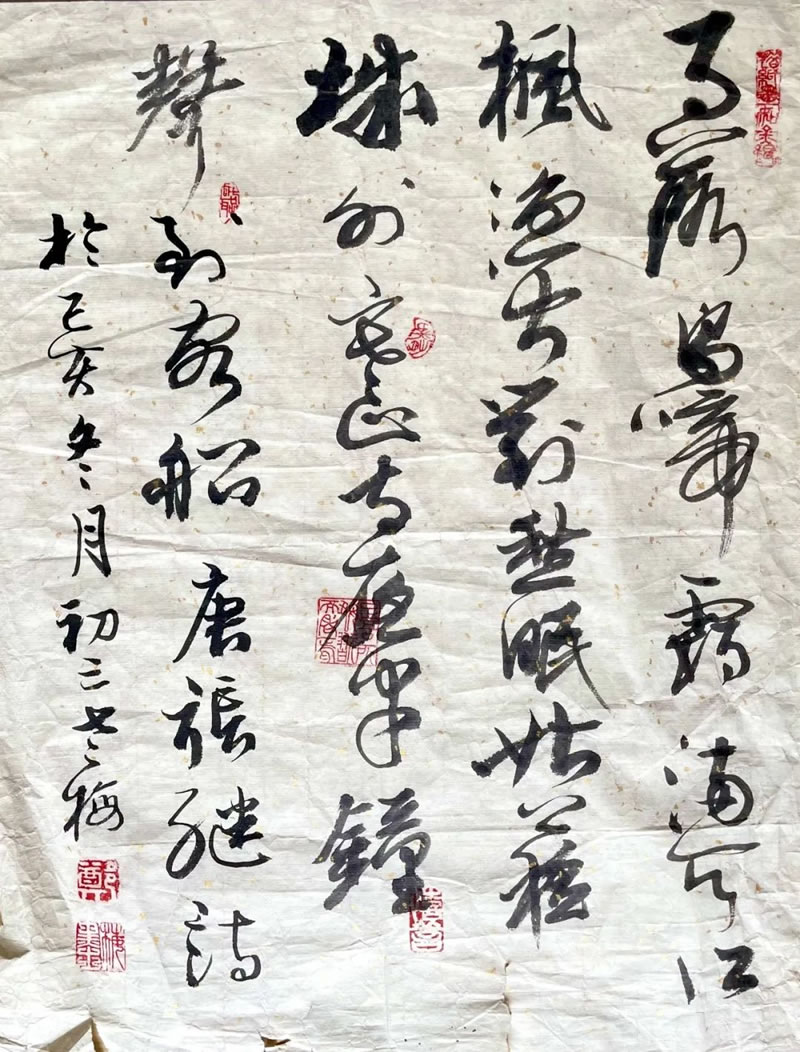 月落烏啼霜滿天江
楓漁火對愁眠姑蘇
城外寒山寺夜半鐘
聲到客船唐張繼詩
於己亥冬月初三老梅